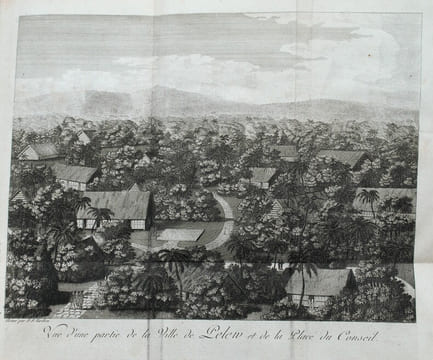 Vue d'une partie de la Ville de Pelew et de la Place du Conseil.